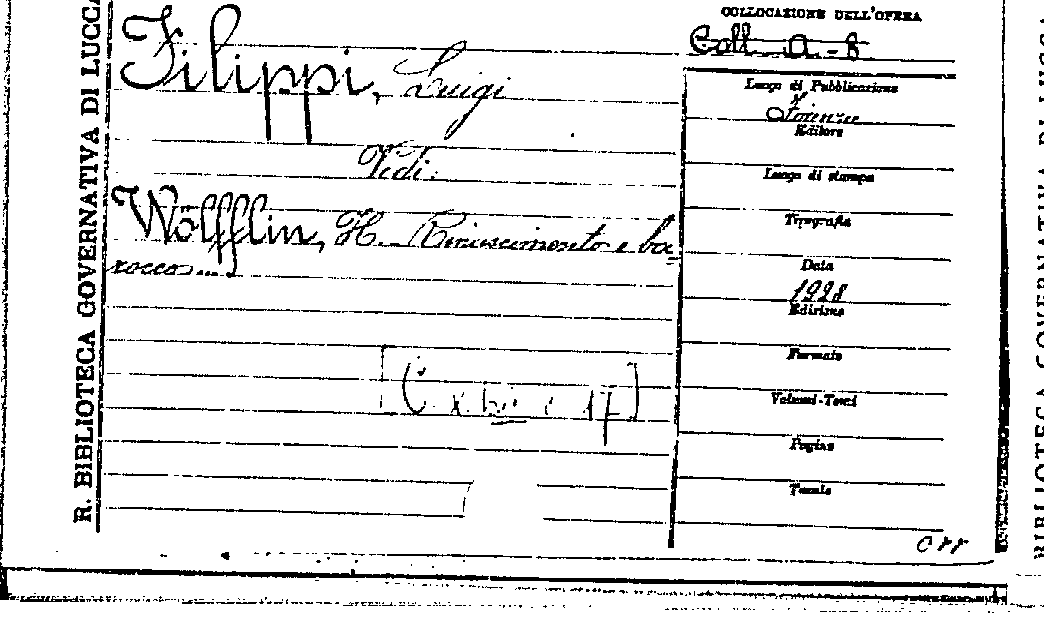 R. BIBLIOTECA GOVERNATIVA DI LUCCA
Filippi, Luigi
Vedi:
Wölfflin, H. Rinascimento e ba-
rocco....
COLLOCAZIONE DELL'OPERA
Coll. A-8
Luogo di Pubblicazione
Firenze
Editore
Luogo di stampa
Tipografia
Data
1928
Edizione
Formato
Volumi-Tomi
Pagine
Tavole
BIBLIOTECA GOVERNATIVA DI LUCCA